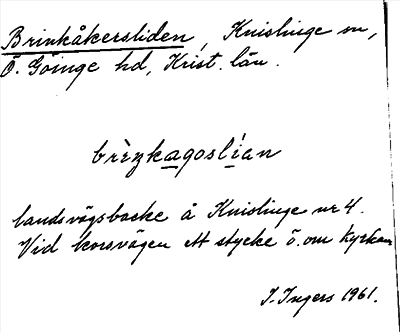 Brinkåkersliden, Knislinge sn,
Ö. Göinge hd, Krist. län.
brìŋkagoslían
landsvägsbacke å Knislinge nr 4.
Vid korsvägen ett stycke ö. om kyrkan
I. Ingers 1961.